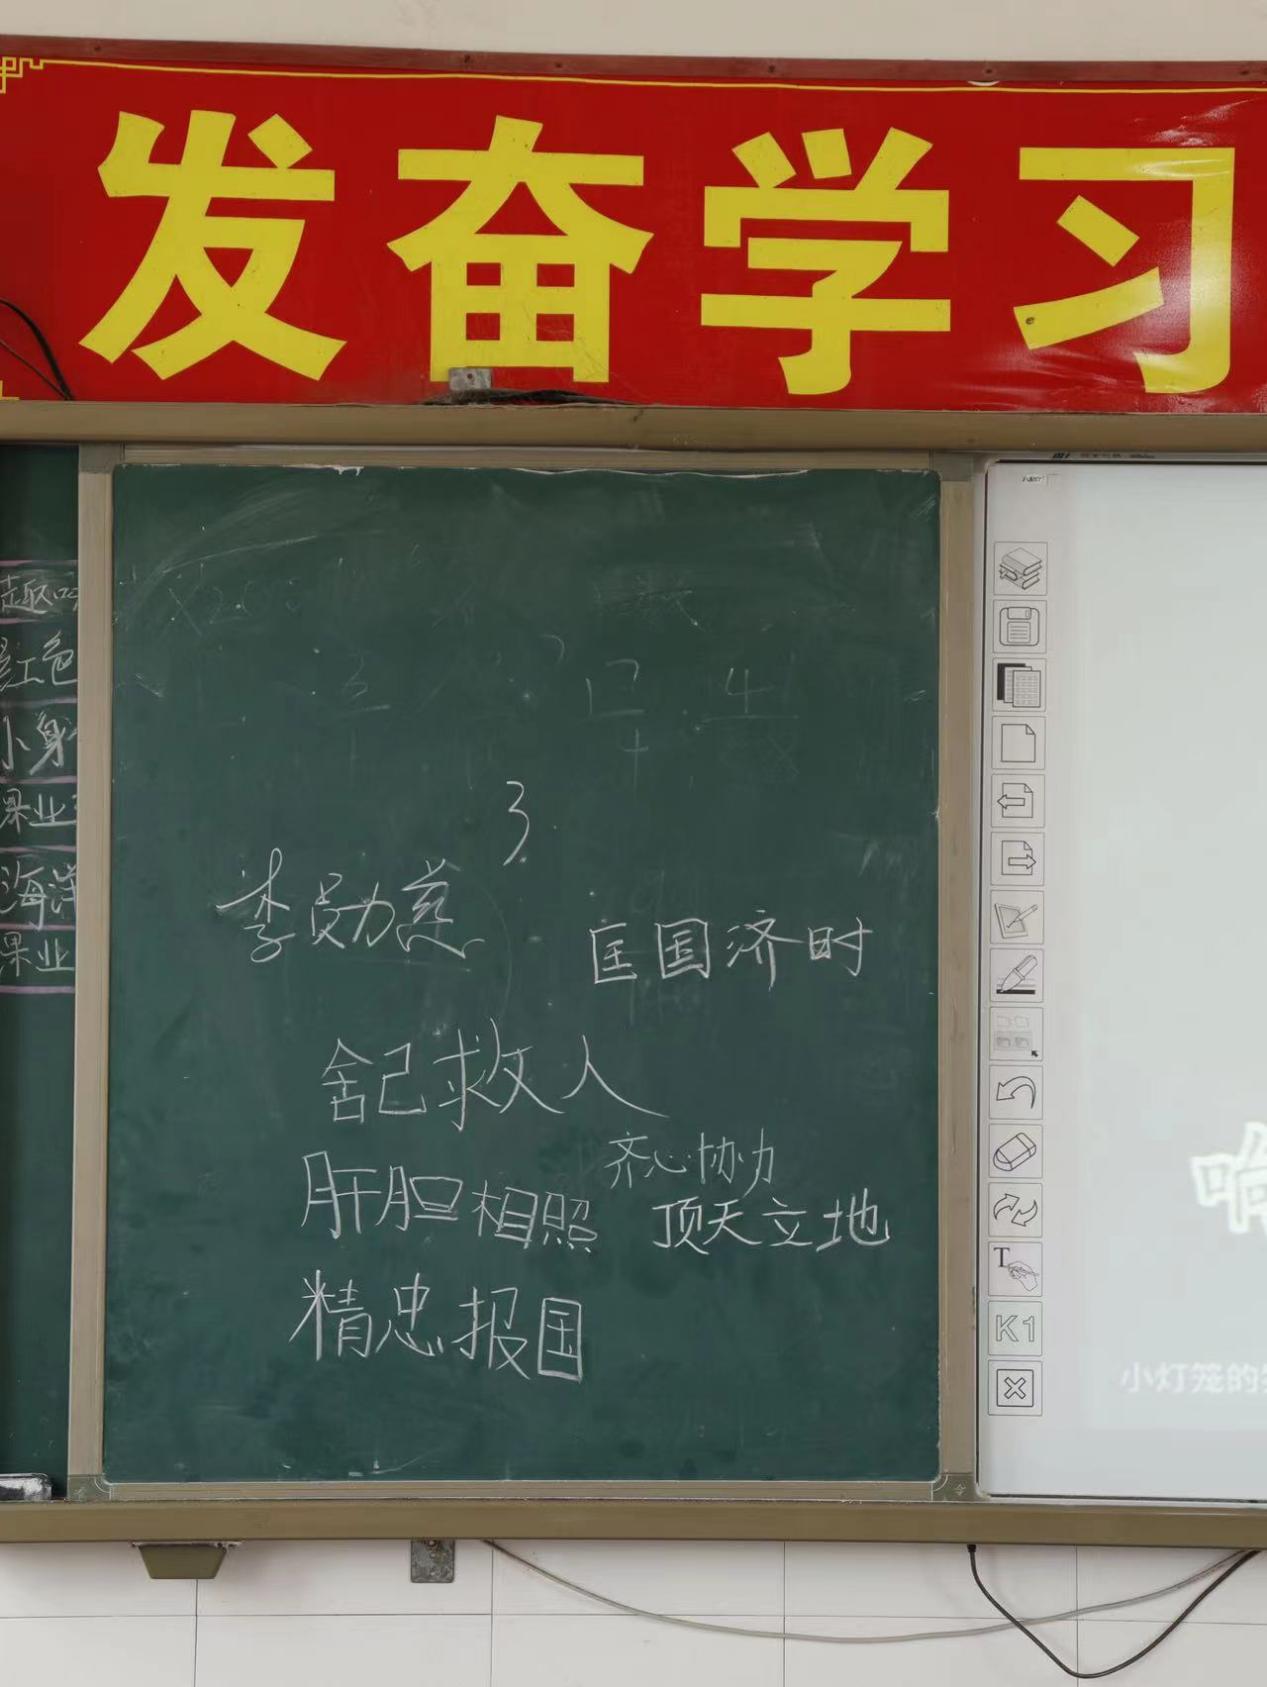 发奋学习
趣
红色
小身
课业
海洋
课业
3
李勋慈
匡国济时
舍己救人
齐心协力
肝胆相照
顶天立地
精忠报国
T
K1
小灯笼的